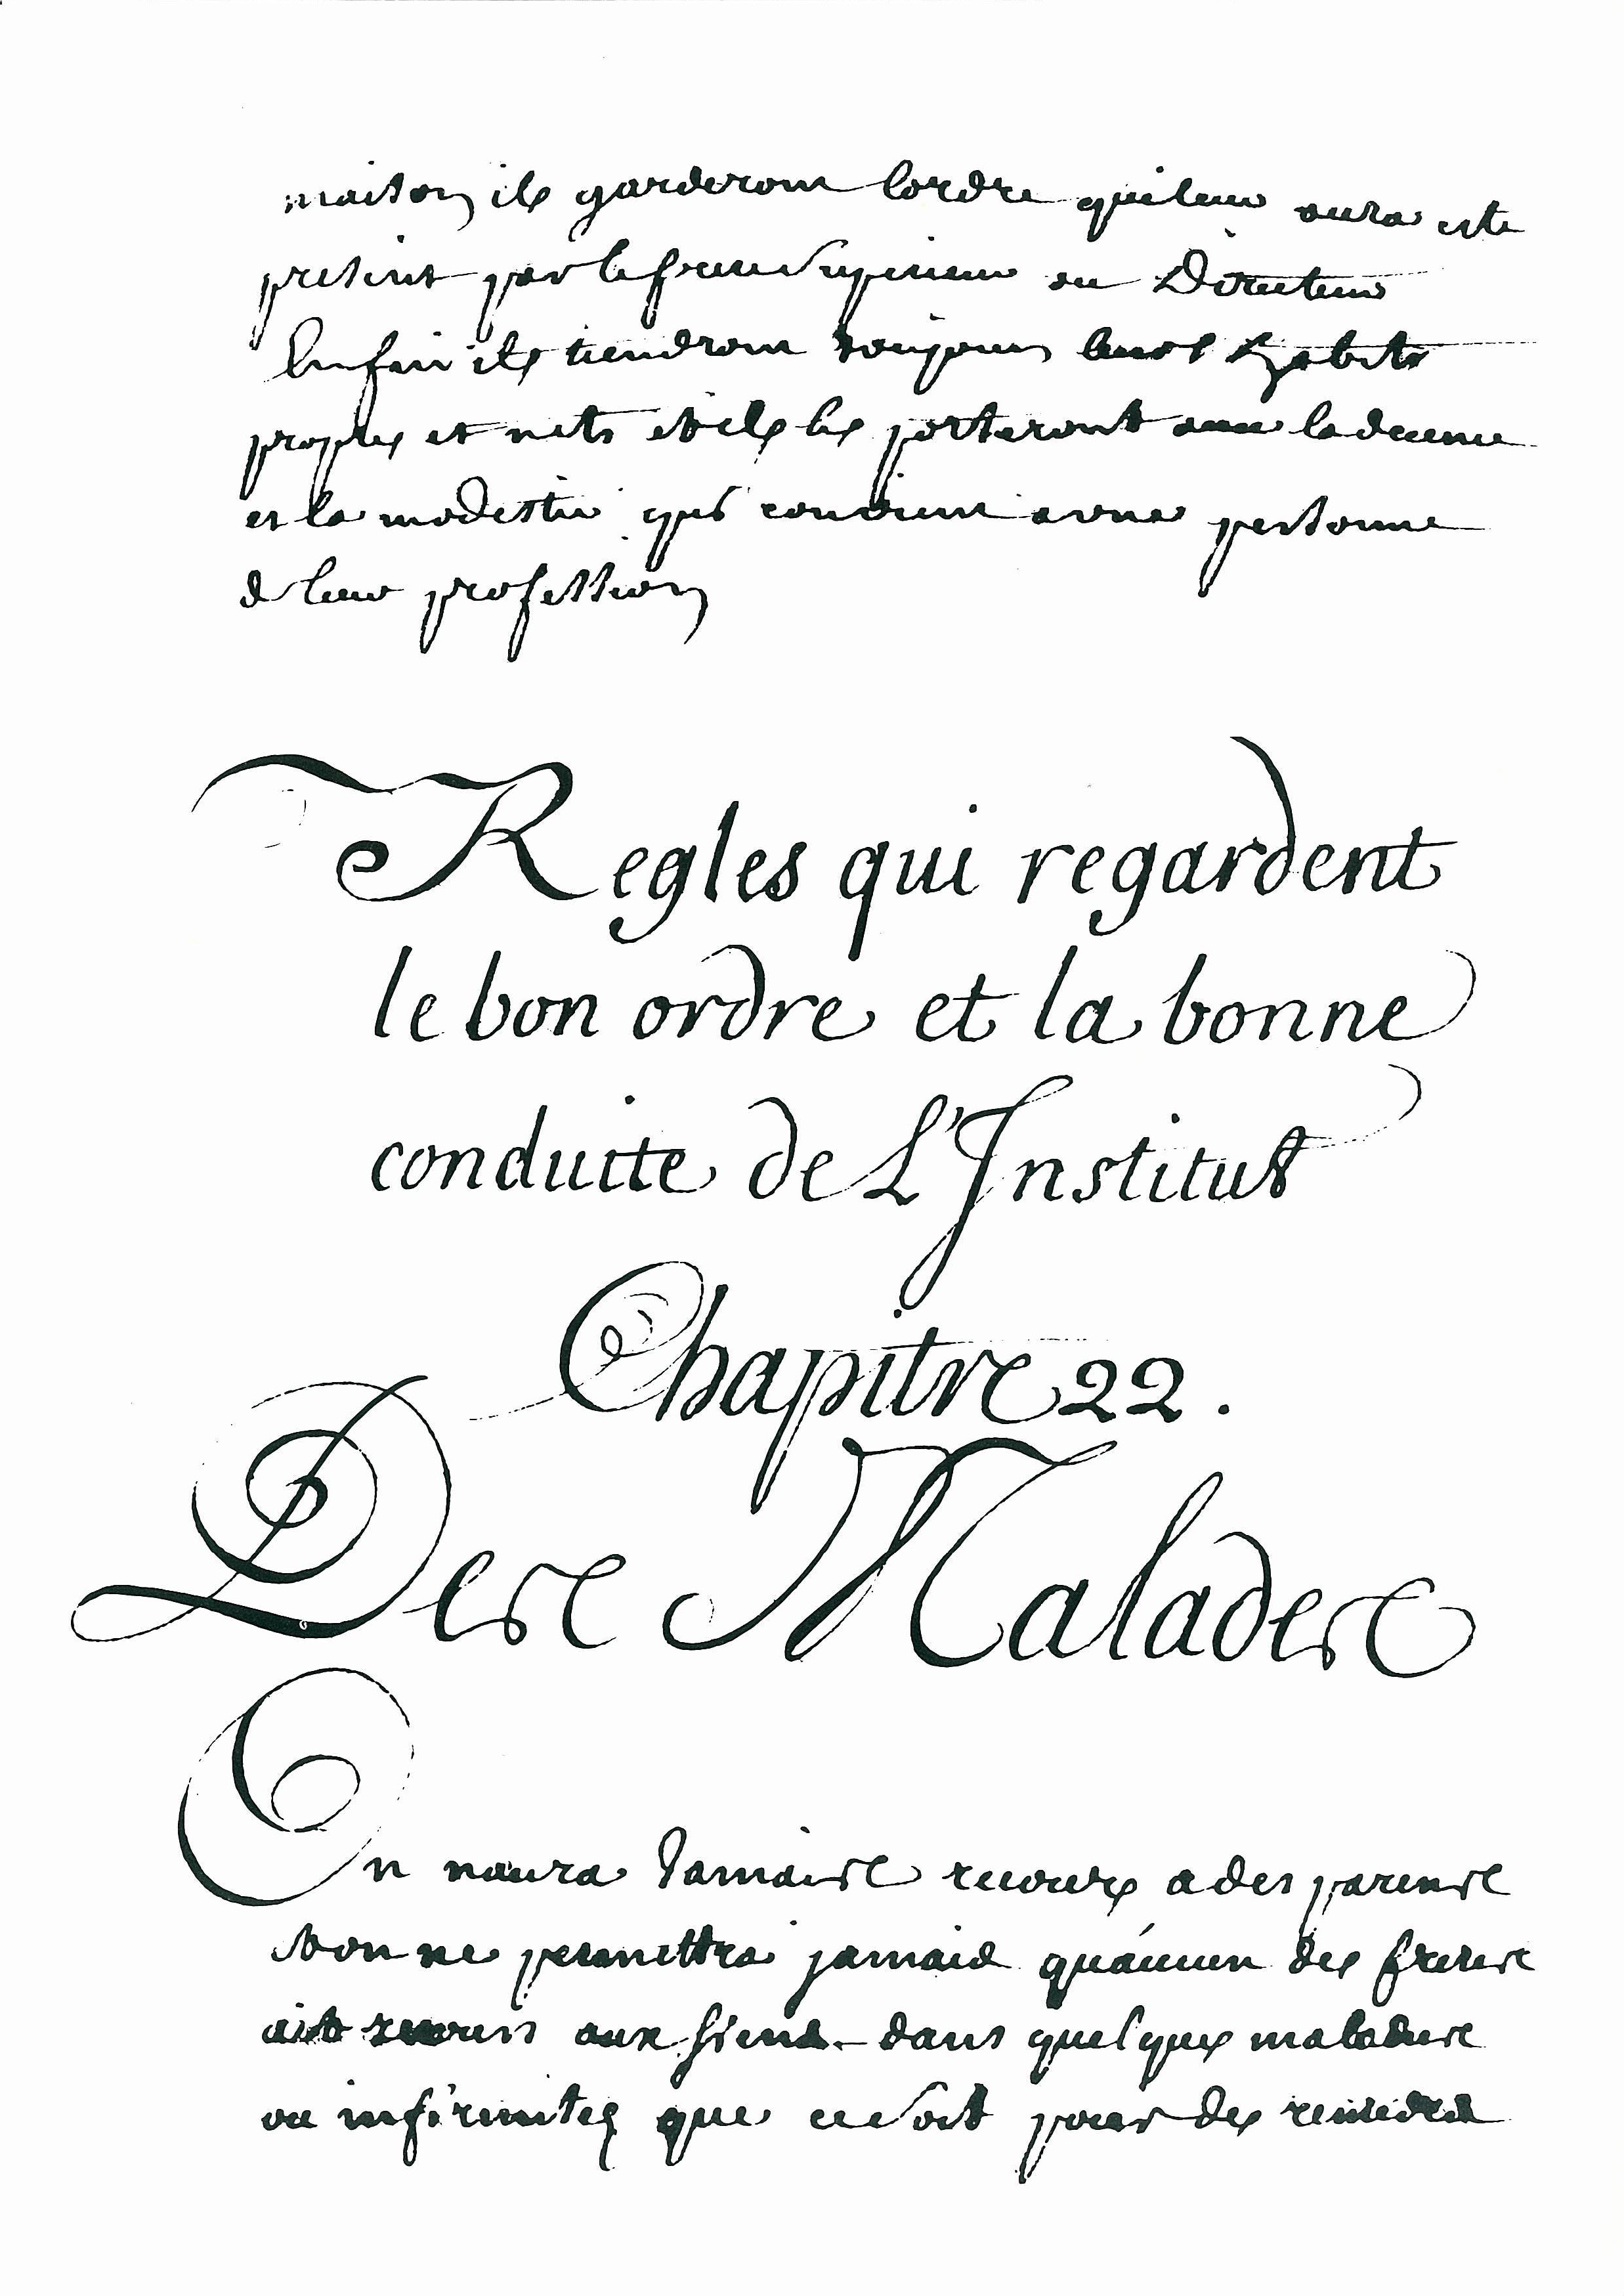 maison ils garderont lordre quileur aura este
prescrit par le frere Superieur ou Directeur
Enfin ils tiendront toujours leurs habits
propres et nets et ils les porteront avec ladecence
et la modestie qui convient a une personne
de leur profession
Regles qui regardent
le bon ordre et la bonne
conduite de L'Institut
Chapitre 22.
Des Malades
On naura Jamais recours a des parens
et on ne permettra jamais quáucun des freres
ait recours aux siens dans quelques maladies
ou infirmites que ce soit pour des remedes